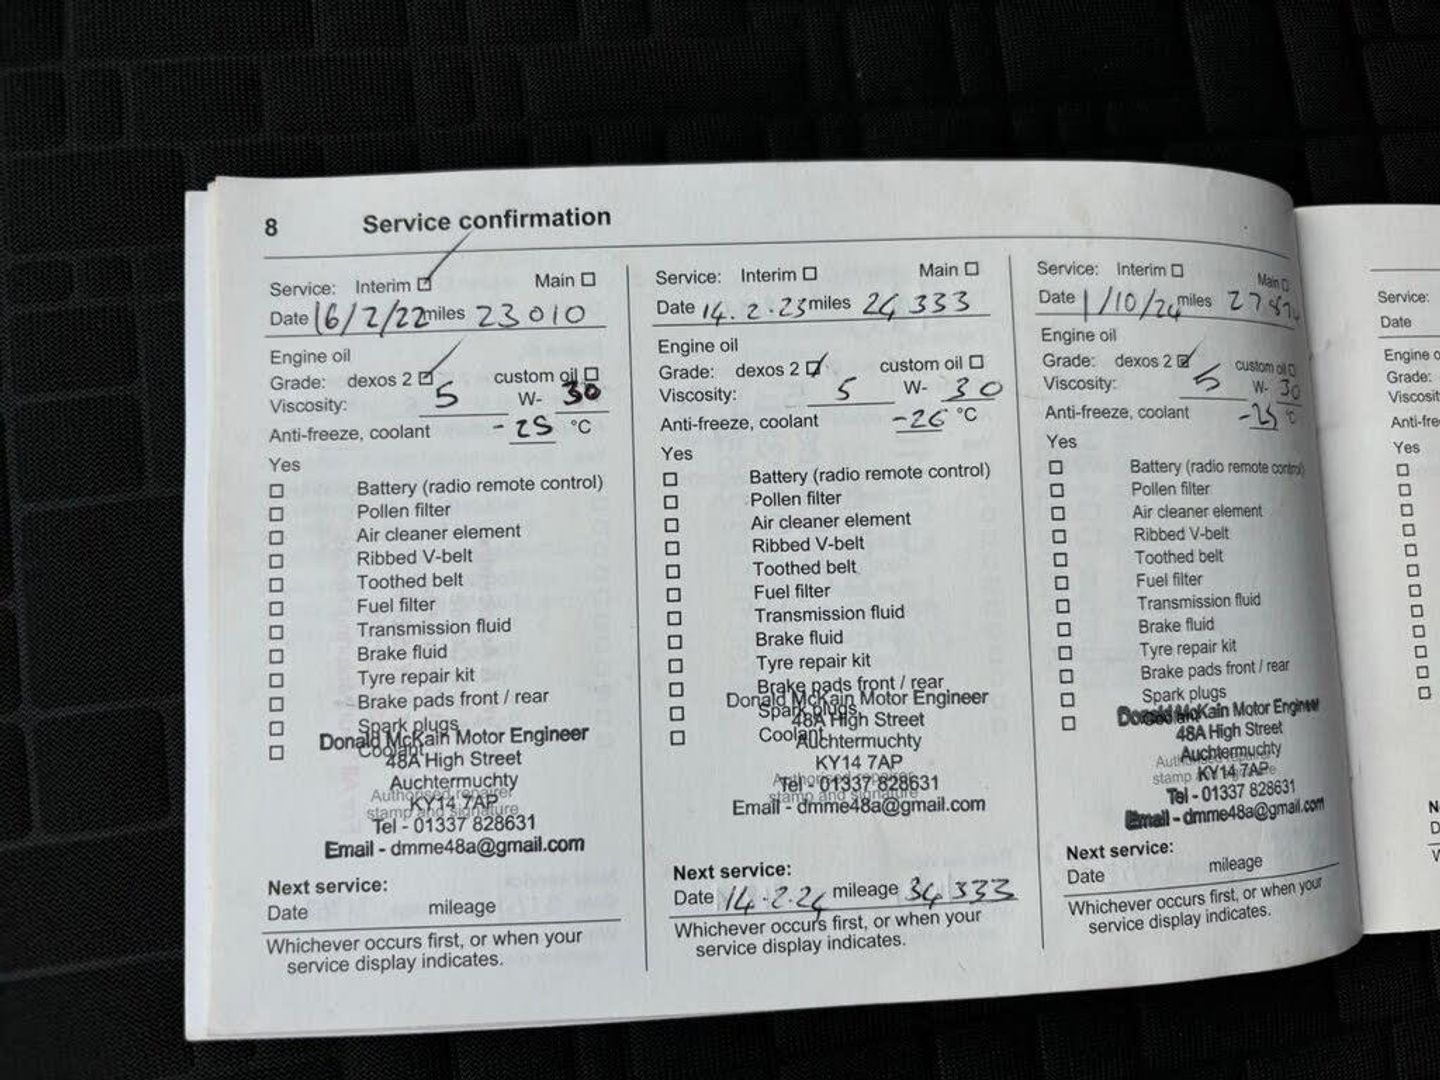 8 Service confirmation
Service: Interim ☑ Main ☐
Date 16/2/22 miles 23010
Engine oil
Grade: dexos 2 ☑ custom oil ☐
Viscosity: 5 W- 30
Anti-freeze, coolant -25 °C
Yes
☐ Battery (radio remote control)
☐ Pollen filter
☐ Air cleaner element
☐ Ribbed V-belt
☐ Toothed belt
☐ Fuel filter
☐ Transmission fluid
☐ Brake fluid
☐ Tyre repair kit
☐ Brake pads front / rear
☐ Spark plugs
☐ Coolant
Donald McKain Motor Engineer
48A High Street
Auchtermuchty
Authorised repairer
KY14 7AP
stamp and signature
Tel - 01337 828631
Email - dmme48a@gmail.com
Next service:
Date mileage
Whichever occurs first, or when your
service display indicates.
Service: Interim ☐ Main ☐
Date 14.2.23 miles 24333
Engine oil
Grade: dexos 2 ☑ custom oil ☐
Viscosity: 5 W- 30
Anti-freeze, coolant -26 °C
Yes
☐ Battery (radio remote control)
☐ Pollen filter
☐ Air cleaner element
☐ Ribbed V-belt
☐ Toothed belt
☐ Fuel filter
☐ Transmission fluid
☐ Brake fluid
☐ Tyre repair kit
☐ Brake pads front / rear
Donald McKain Motor Engineer
☐ Spark plugs
48A High Street
☐ Coolant
Auchtermuchty
KY14 7AP
Authorised repairer
Tel - 01337 828631
stamp and signature
Email - dmme48a@gmail.com
Next service:
Date 14.2.24 mileage 34333
Whichever occurs first, or when your
service display indicates.
Service: Interim ☐ Main ☐
Date 1/10/24 miles
Engine oil
Grade: dexos 2 ☑ custom oil ☐
Viscosity: 5 W- 30
Anti-freeze, coolant -25 °C
Yes
☐ Battery (radio remote control)
☐ Pollen filter
☐ Air cleaner element
☐ Ribbed V-belt
☐ Toothed belt
☐ Fuel filter
☐ Transmission fluid
☐ Brake fluid
☐ Tyre repair kit
☐ Brake pads front / rear
☐ Spark plugs
☐
Donald McKain Motor Engineer
48A High Street
Auchtermuchty
Authorised repairer
KY14 7AP
stamp and signature
Tel - 01337 828631
Email - dmme48a@gmail.com
Next service:
Date mileage
Whichever occurs first, or when your
service display indicates.
Service:
Date
Engine
Grade:
Yes